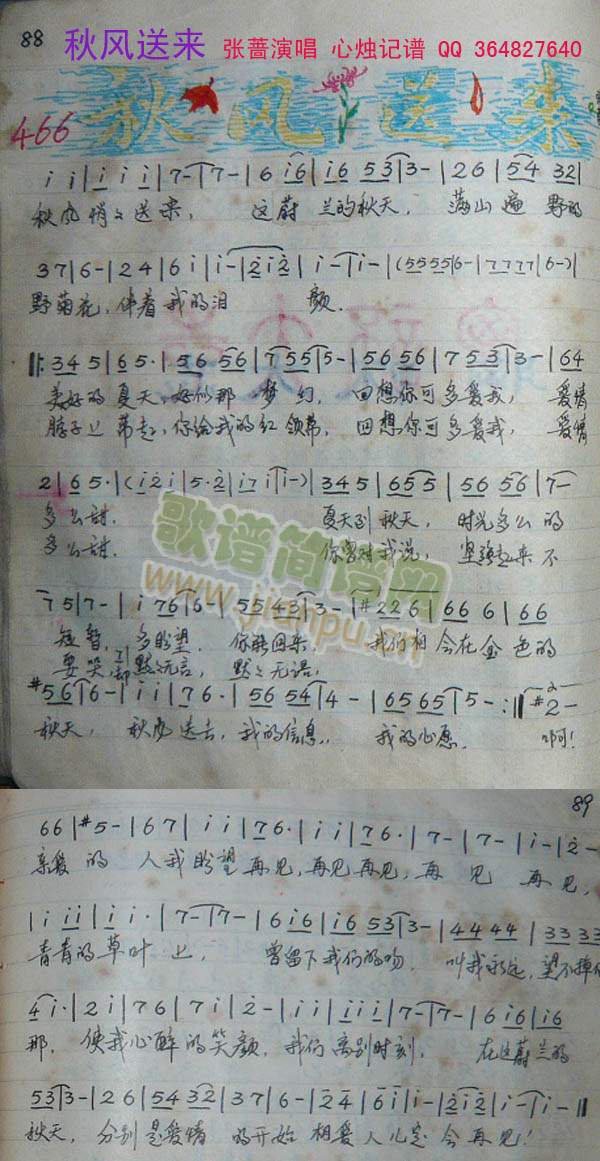 88 秋风送来 张蔷演唱 心烛记谱 QQ 364827640
466 秋风送来
i i | i i i | 7- | 7- | 6 i6 | i6 53 | 3- | 26 | 54 32 |
秋风悄々送来, 这蔚兰的秋天, 满山遍野的
37 | 6- | 24 | 6i | i- | 2i2 | i- | i- | (5555 | 6- | 7777 | 6-) |
野菊花,伴着我的泪颜.
‖: 345 | 65· | 56 56 | 755 | 5- | 56 56 | 7 53 | 3- | 64
美好的夏天,好似那梦幻, 回想你可多爱我, 爱情
脖子上 你给我的红领带, 回想你可多爱我, 爱情
2 | 65· | (i2i | 5·2 | i7i | i-) | 345 | 655 | 56 56 | 7-
多么甜. 夏天到秋天, 时光多么的
多么甜. 你曾对我说, 坚强起来不
歌谱简谱网
www.jianpu.cn
75 | 7- | i 76 | 6- | 5543 | 3- | #226 | 66 6 | 66
短暂, 多盼望, 你能回来, 我们相会在金色的
要哭, 却默々无言, 默々无语,
#56 | 6- | i i | 76· | 56 54 | 4- | 65 65 | 5- :‖ #2-
秋天, 秋风送去, 我的信息, 我的心愿. 啊!
89
66 | #5- | 67 | i i | 76· | i i | 76· | 7- | 7- | i- | 2-
亲爱的人我盼望再见,再见再见,再见再见,
| i ii | i i· | 7- | 7- | 6 i6 | i6 53 | 3- | 44 44 | 33 33
青青的草叶上, 曾留下我们的吻, 叫我永远,望不掉你
4 i· | 2i | 76 | 7i | 2- | i i | i i i | 7- | 7- | 6 i6 | i6
那, 使我心醉的笑颜, 我们离别时刻, 在这蔚兰的
53 | 3- | 26 | 54 32 | 37 | 6- | 24 | 6i | i- | 2i2 | i- | i- ‖
秋天, 分别是爱情的开始 相爱人儿定会再见!